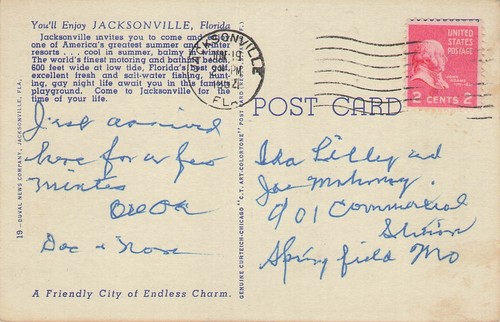 You'll Enjoy JACKSONVILLE, Florida
Jacksonville invites you to come and
one of America's greatest summer and winter
resorts . . . cool in summer, balmy in winter.
The world's finest motoring and bathing beach,
600 feet wide at low tide, Florida's best golf,
excellent fresh and salt-water fishing, hunt-
ing, gay night life await you in this famous
playground. Come to Jacksonville for the
time of your life.
JACKSONVILLE
FLA.
UNITED
STATES
POSTAGE
2 CENTS 2
POST CARD
Just arrived
here for a few
minutes
All OK
Doc + Nora
Ida Lilley and
Joe Mahoney
901 Commercial
Springfield Mo
19 — DUVAL NEWS COMPANY, JACKSONVILLE, FLA.
GENUINE CURTEICH-CHICAGO "C.T. ART-COLORTONE" POST CARD
A Friendly City of Endless Charm.